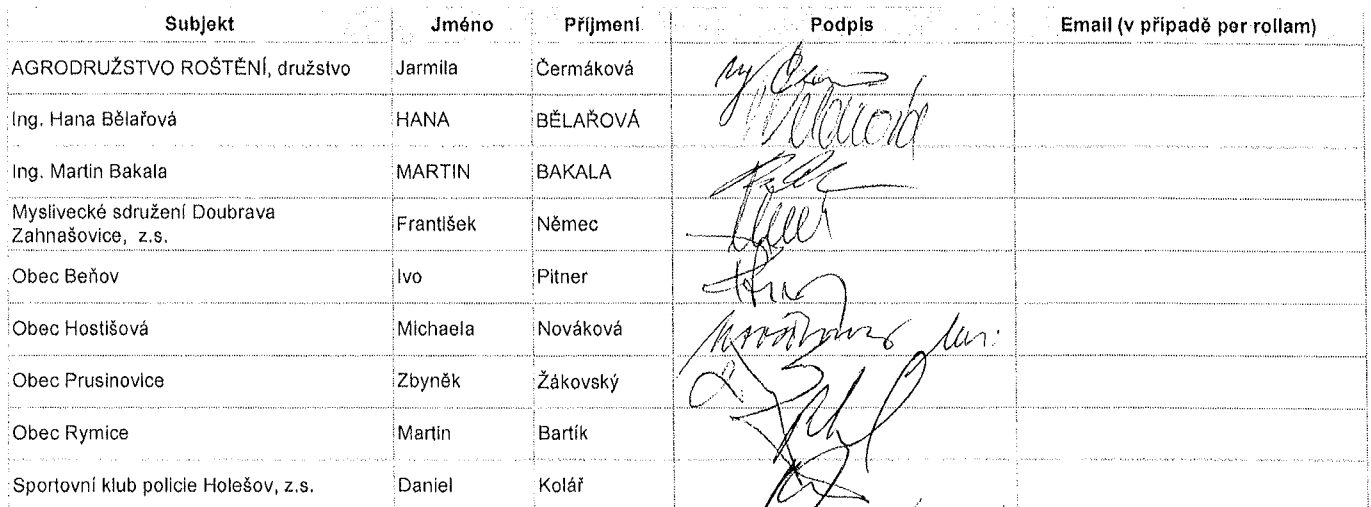 Subjekt Jméno Příjmení Podpis Email (v případě per rollam)
AGRODRUŽSTVO ROŠTĚNÍ, družstvo Jarmila Čermáková
Ing. Hana Bělařová HANA BĚLAŘOVÁ
Ing. Martin Bakala MARTIN BAKALA
Myslivecké sdružení Doubrava
Zahnašovice, z.s. František Němec
Obec Beňov Ivo Pitner
Obec Hostišová Michaela Nováková
Obec Prusinovice Zbyněk Žákovský
Obec Rymice Martin Bartík
Sportovní klub policie Holešov, z.s. Daniel Kolář